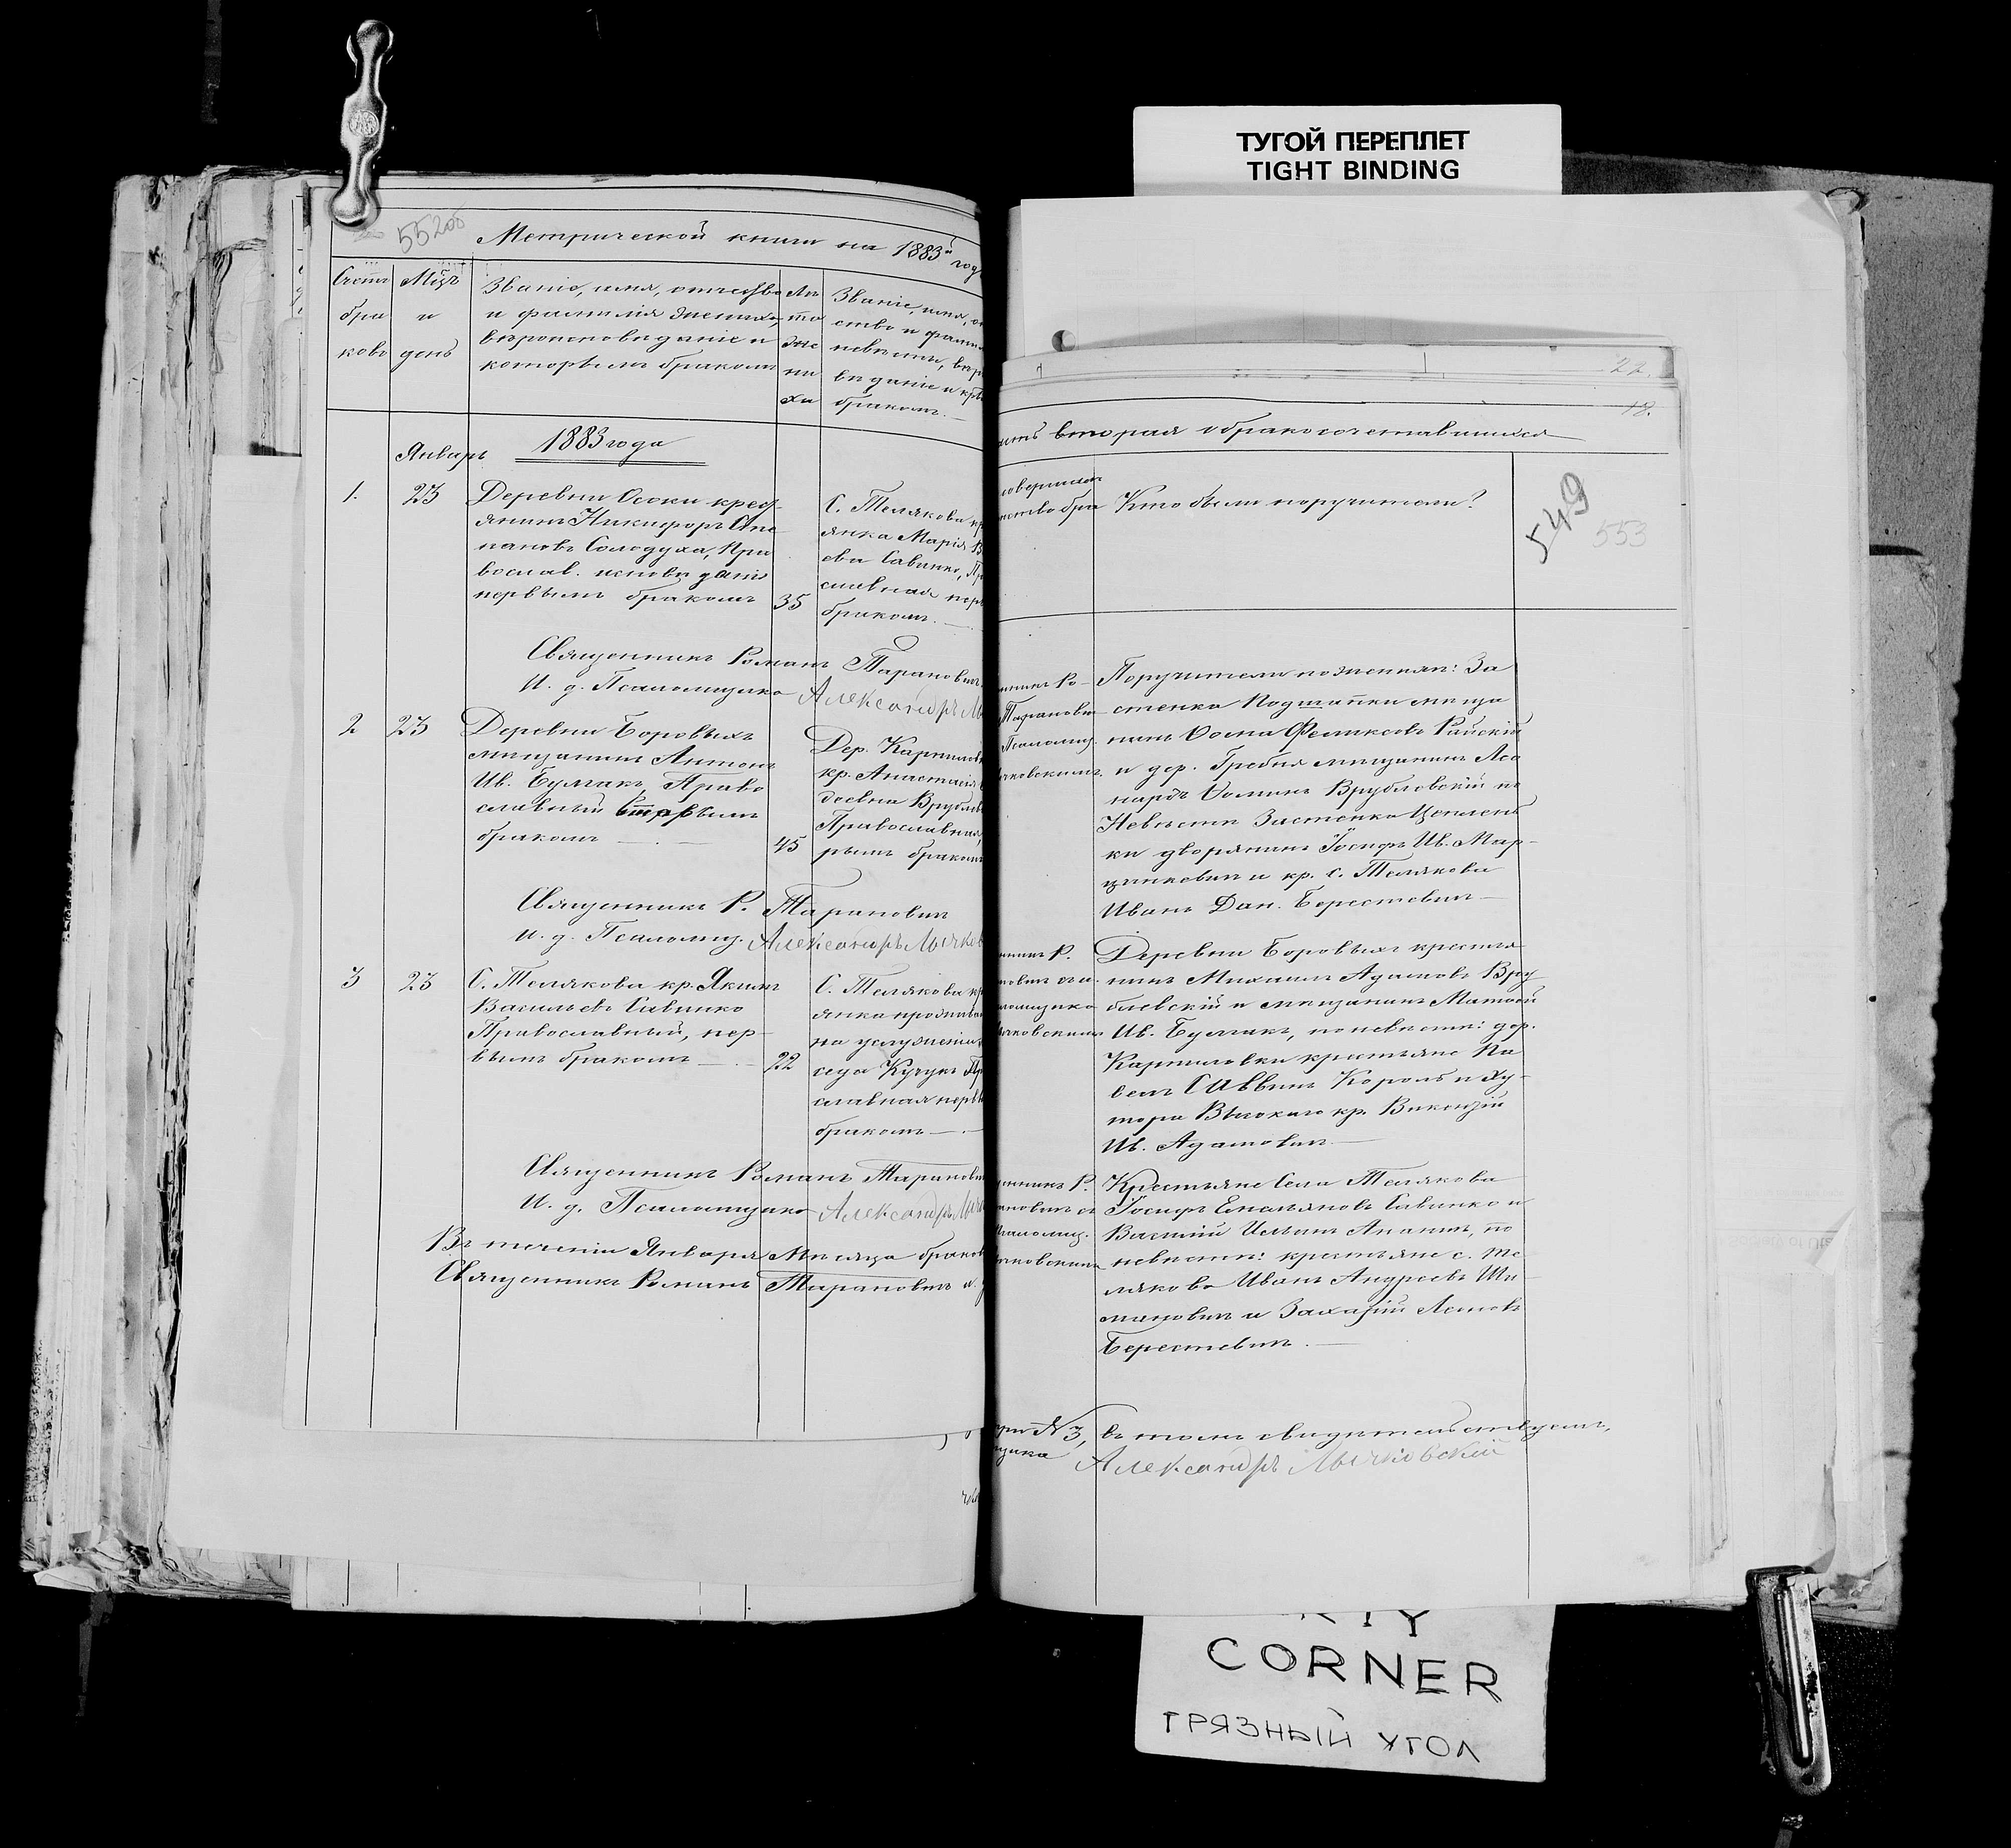 ТУГОЙ ПЕРЕПЛЕТ
TIGHT BINDING
Метрической книги на 1883й годъ
Счетъ
бра
ковъ
Мцъ
и
день
Званіе, имя, отчество
и фамилія жениха,
вѣроисповѣданіе и
которымъ бракомъ
Лѣ
та
же
ни
ха
Званіе, имя, от
ство и фами
невѣсты, вѣр
вѣданіе и кр
бракомъ.
Январь
1883 года
1.
23
Деревни Осоки крест
янинъ Никифоръ Сте
пановъ Солодуха, Пра
вослав. исповѣданія
первымъ бракомъ
35
С. Телякова кр
янка Марія В
ева Савинко, Пр
славная пер
бракомъ.
Священникъ Романъ Тарановичъ
И. д. Псаломщика Александръ Лы
2
23
Деревни Боровыхъ
мѣщанинъ Антонъ
Ив. Булгакъ, Право
славный вторымъ
бракомъ
45
Дер. Карпилов
кр. Анастасія
деевна Врублев
Православная,
рымъ бракомъ
Священникъ Р. Тарановичъ
И. д. Псаломщ. Александръ Лычков
3
23
С. Телякова кр. Якимъ
Васильевъ Савинко
Православный, пер-
вымъ бракомъ
22
С. Телякова кр
янка прожива
на услуженіи
сѣда Кучукъ Пр
славная первы
бракомъ
Священникъ Романъ Таранови
И. д. Псаломщика Александръ Лыч
Въ теченіи Января Мѣсяца браков
Священникъ Романъ Тарановичъ и. д
22.
18.
асть вторая о бракосочетавшихся
совершал
инство бра
Кто были поручители?
549
553
нникъ Ро-
Таранови
Псаломщ.
ычковскимъ.
Поручители по женихѣ: За
стенка Подгаткки мѣща
нинъ Ѳома Феликсовъ Райскій
и дер. Гребня мѣщанинъ Лео
нардъ Ѳоминъ Врубловскій по
Невѣстѣ Застенка Цеплень
ки дворянинъ Іосифъ Ив. Мар-
цинкевичъ и кр. с. Телякова
Иванъ Дан. Берестевичъ
нникъ Р.
новичъ съ и.
ломщика
ычковскимъ
Деревни Боровыхъ крестья
нинъ Михаилъ Адамовъ Вру
блевскій и мѣщанинъ Матвей
Ив. Булгакъ, по невѣстѣ: дер.
Карпиловки крестьяне Па
велъ Саввинъ Король и Ху-
тора Высокаго кр. Викентій
Ив. Адамовичъ
енникъ Р.
ановичъ съ
Псаломщ.
ычковскимъ
Крестьяне Села Телякова
Іосифъ Емельяновъ Савинко и
Василій Ильинъ Апанъ, по
невѣстѣ: крестьяне с. Те
лякова Иванъ Андреевъ Ши
мановичъ и Захарій
Берестевичъ.
ри № 3, въ томъ свидѣтельствуемъ,
щика Александръ Лычковскій
CORNER
ГРЯЗНЫЙ УГОЛ